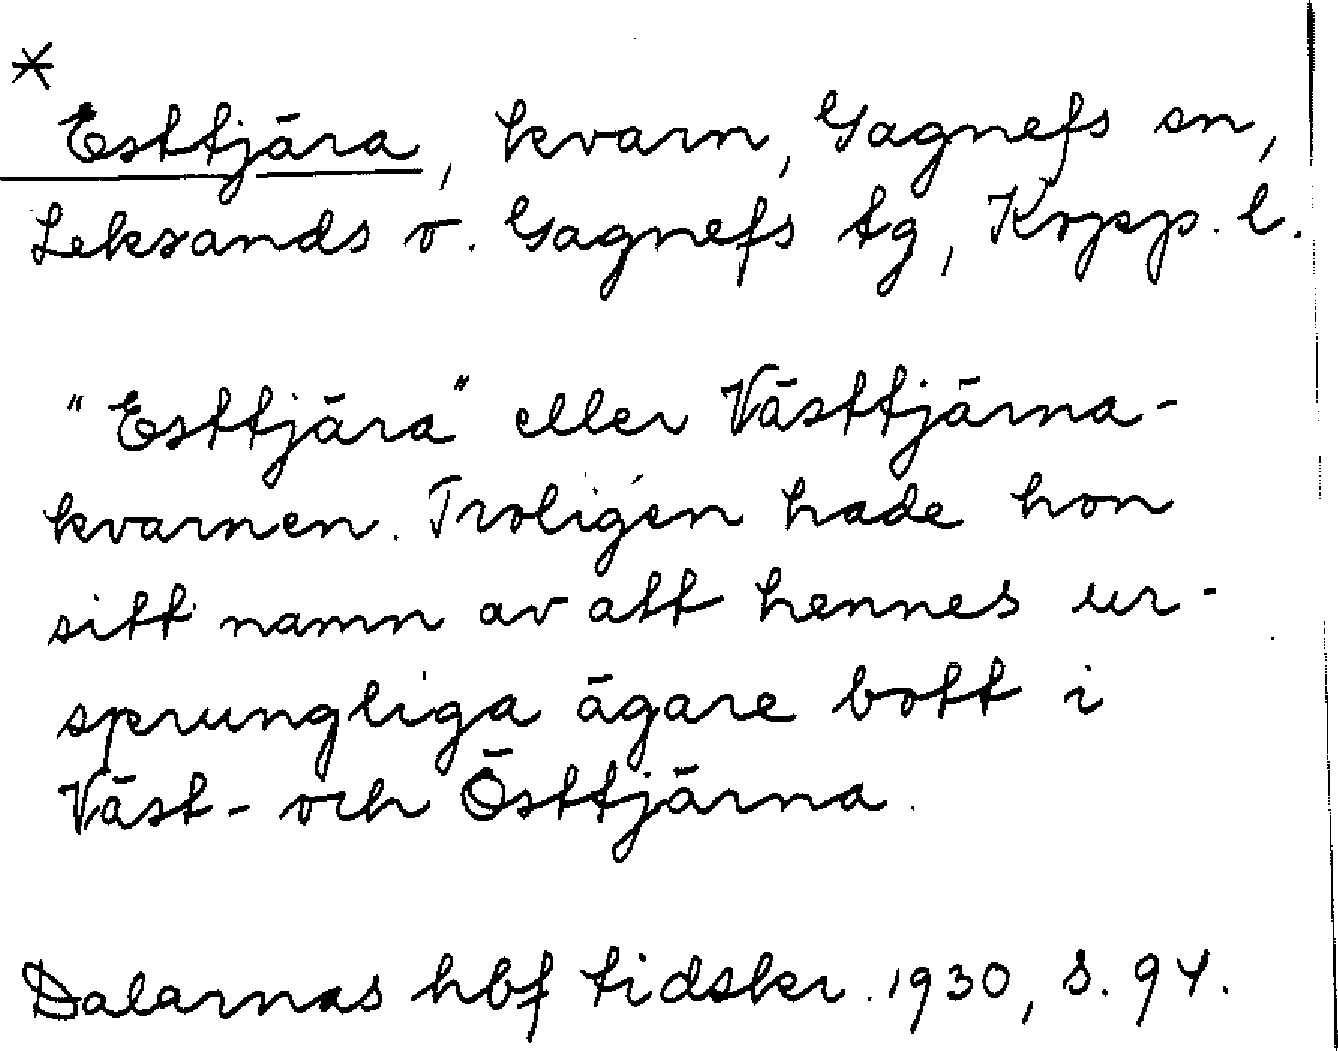 *
Esttjära, kvarn, Gagnefs sn,
Leksands o. Gagnefs tg, Kopp. l.
"Esttjära" eller Västtjärna-
kvarnen. Troligen hade hon
sitt namn av att hennes ur-
sprungliga ägare bott i
Väst- och Östtjärna.
Dalarnas hbf tidskr. 1930, s. 94.